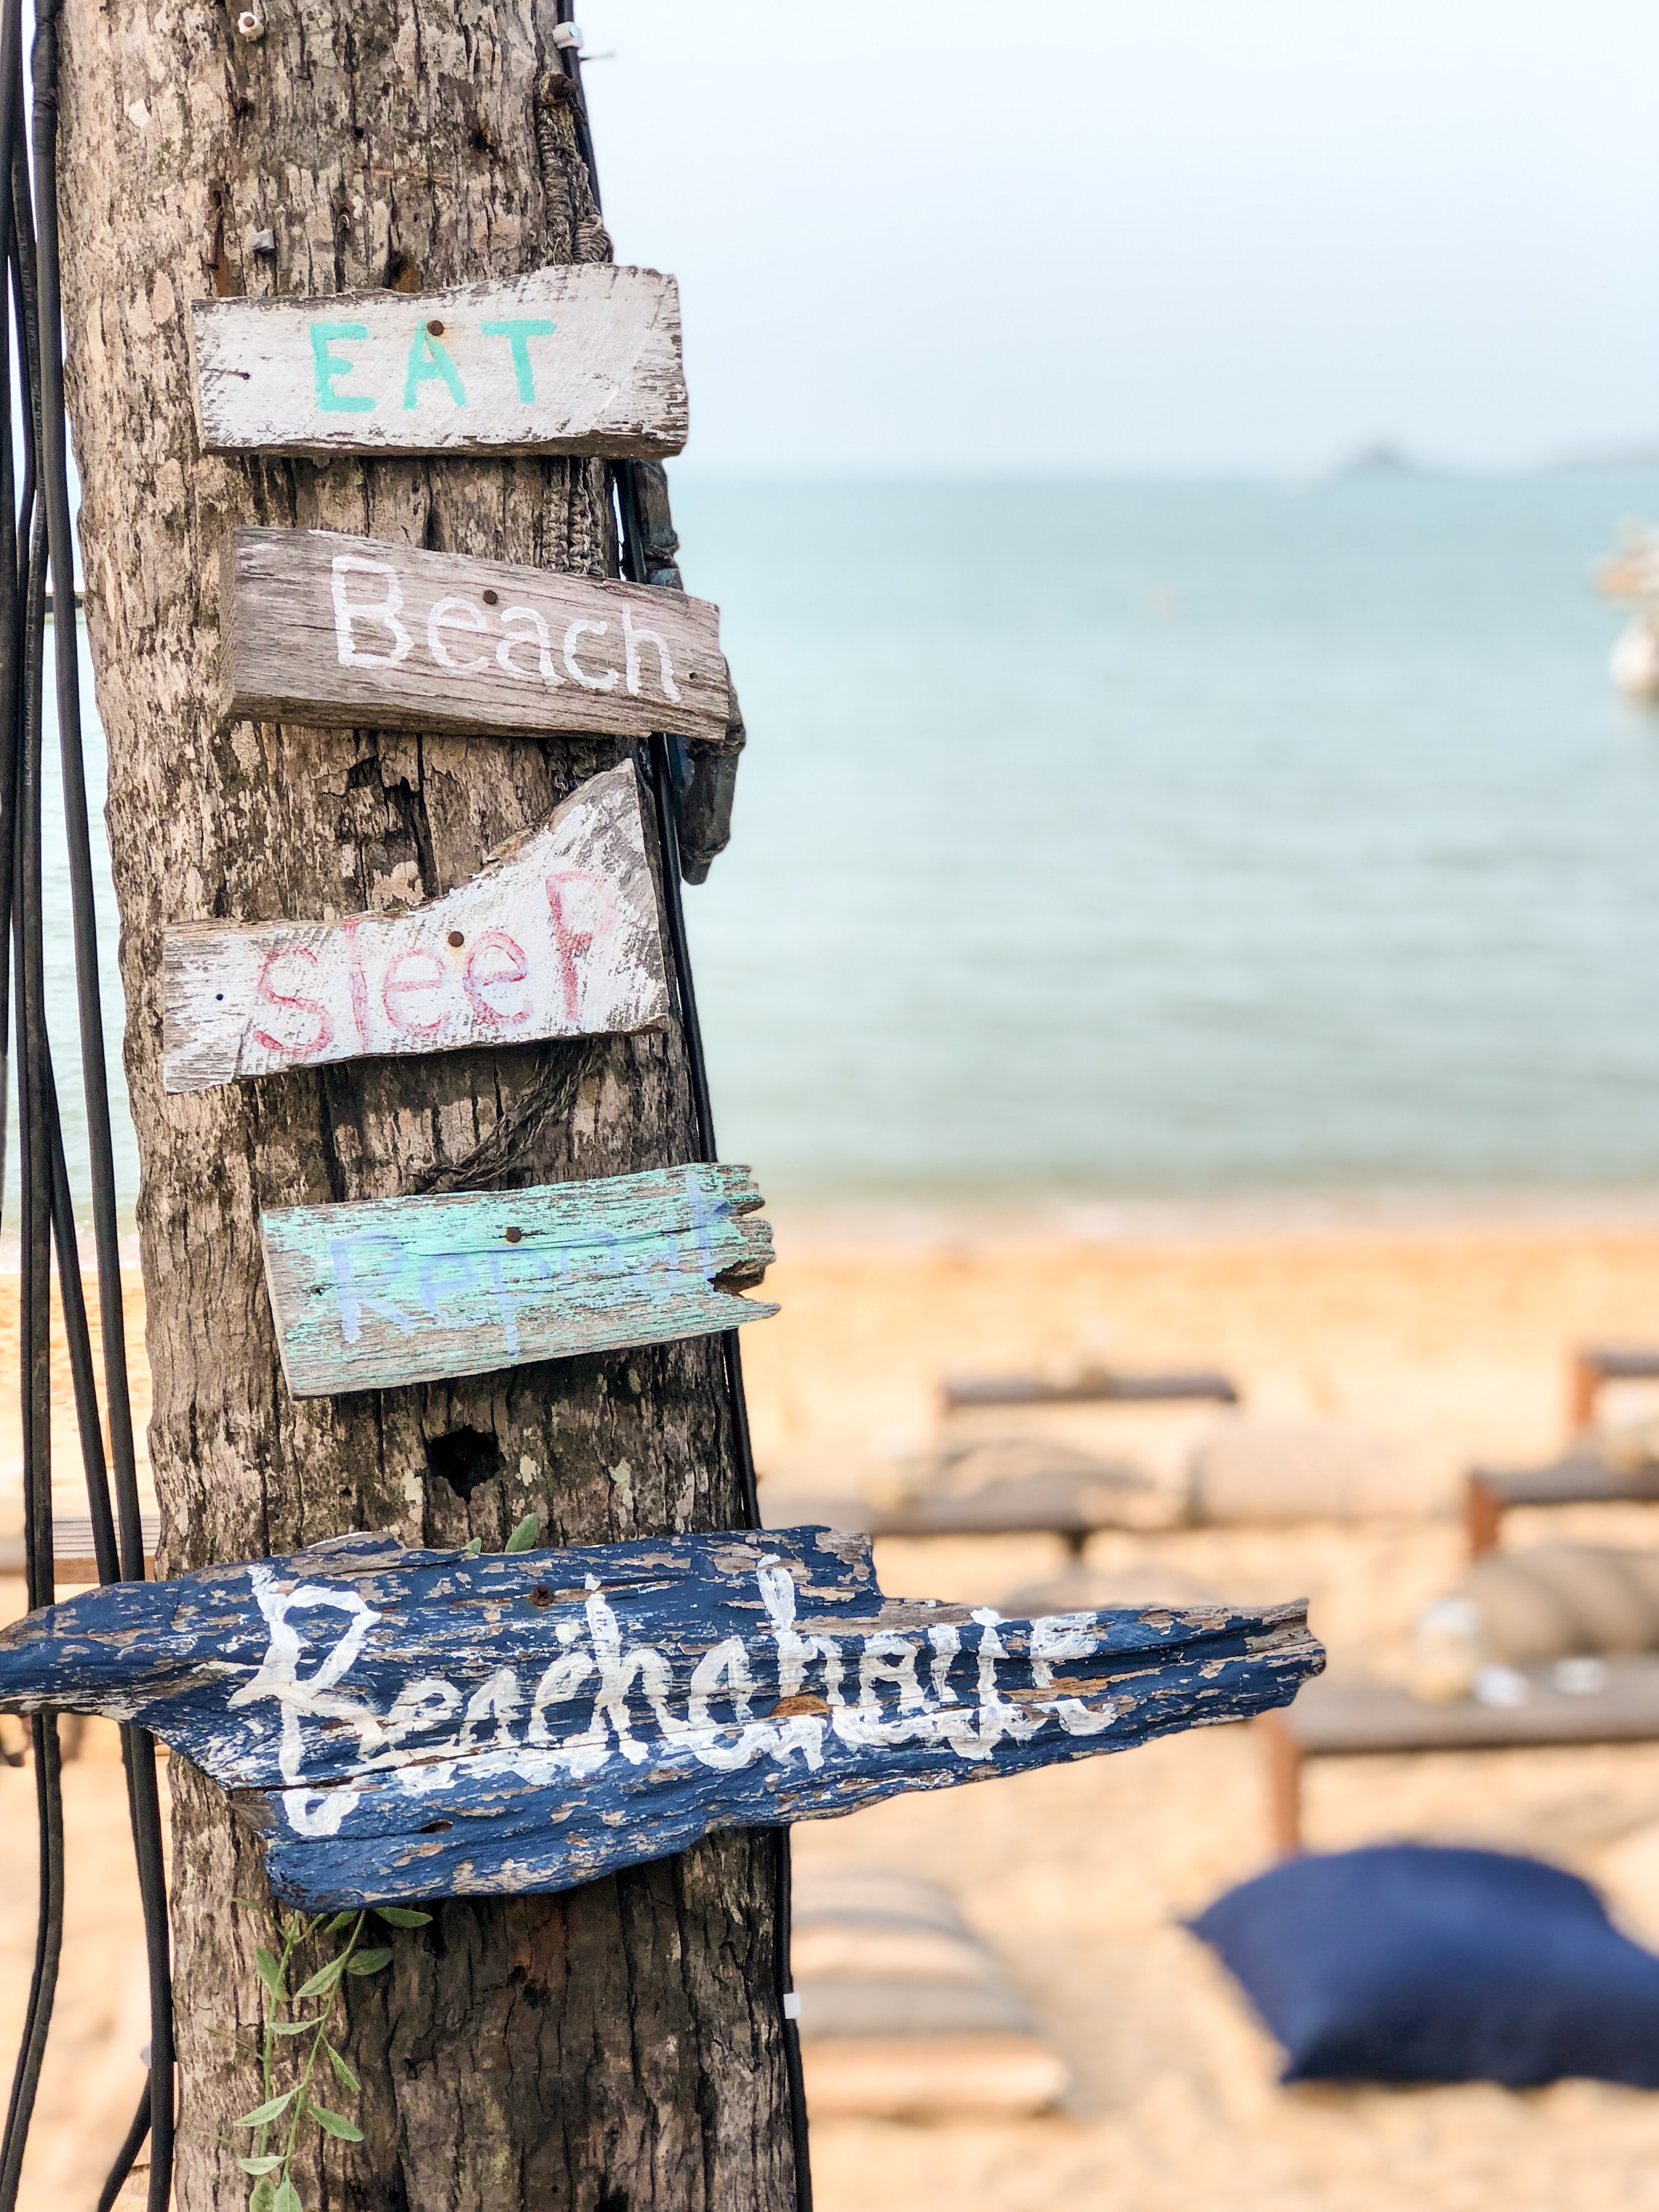 EAT
Beach
sleeP
Repeat
Beachahouse